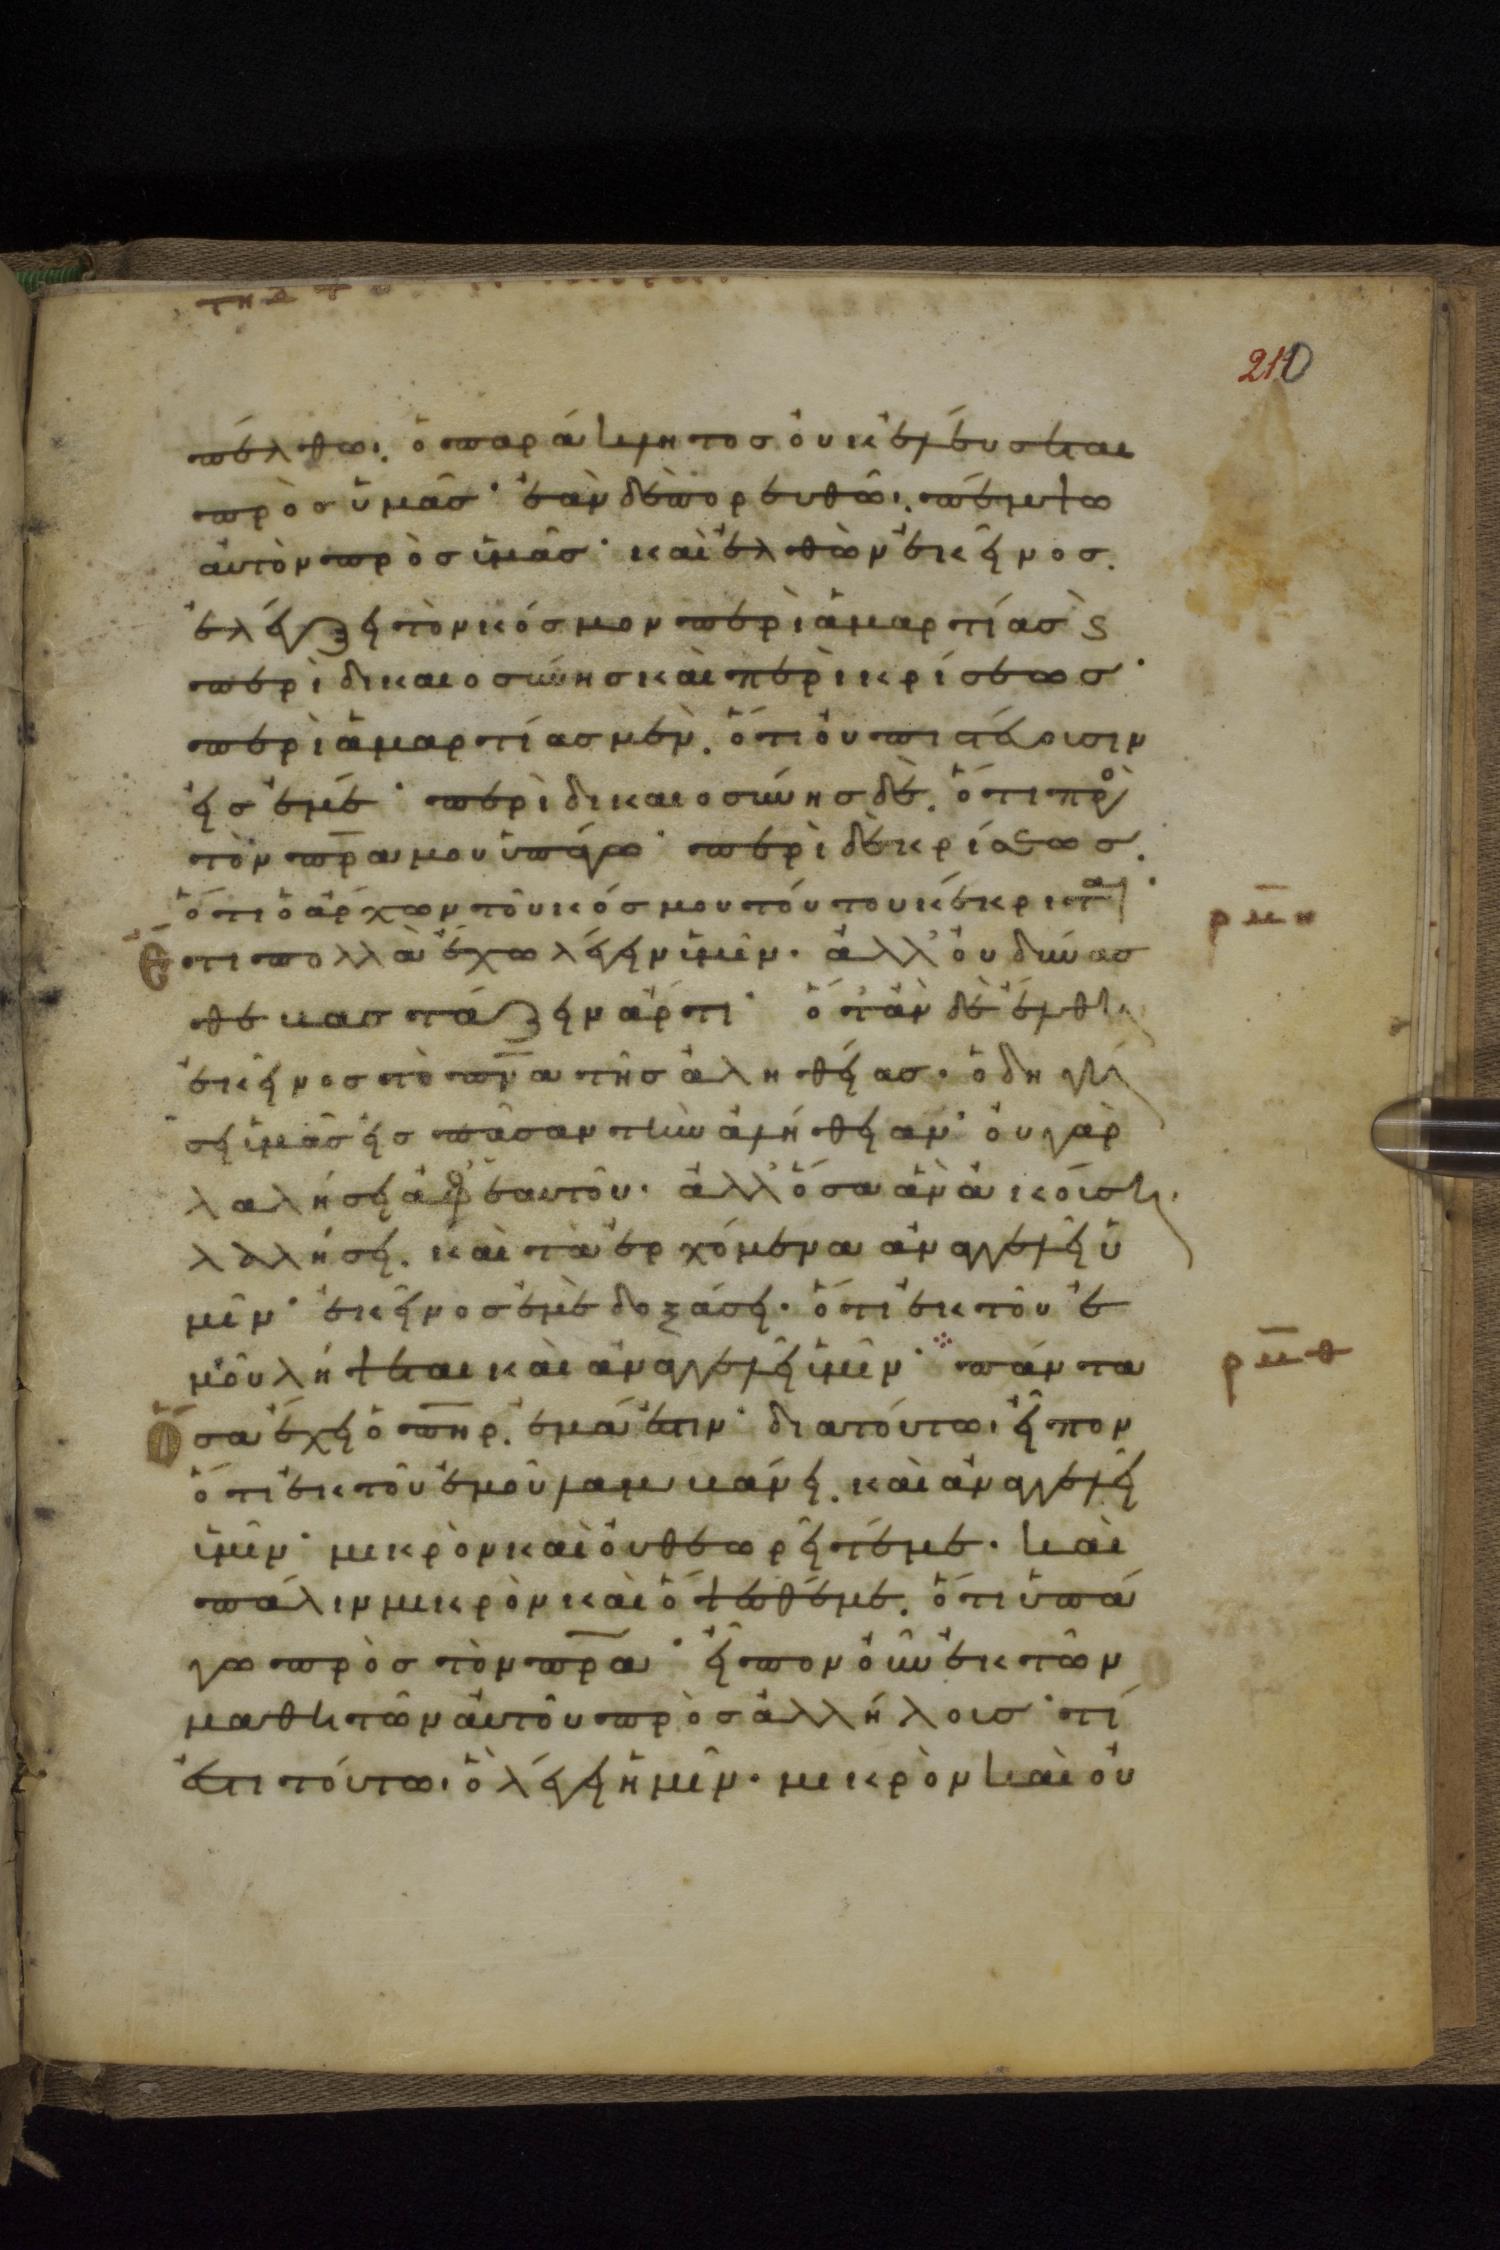 210
πέλθω· ὁ παράκλητος οὐκ ἐλεύσεται
πρὸς ὑμᾶς· ἐὰν δὲ πορευθῶ· πέμψω
αὐτὸν πρὸς ὑμᾶς· καὶ ἐλθὼν ἐκεῖνος.
ἐλέγξει τὸν κόσμον περὶ ἁμαρτίας ϛ
περὶ δικαιοσύνης καὶ περὶ κρίσεως·
περὶ ἁμαρτίας μὲν. ὅτι οὐ πιστέυουσιν
εἰς ἐμέ· περὶ δικαιοσύνης δὲ. ὅτι πρὸ
τὸν πρ̅α μου ὑπάγω· περὶ δὲ κρίσεως.
ὅτι ὁ ἄρχων τοῦ κόσμου τούτου κέκριται·
ρμ̅η
Ἔτι πολλὰ ἔχω λέγειν ὑμῖν· ἀλλ' οὐ δύνασ
θε βαστάζειν ἄρτι· ὅταν δὲ ἔλθη
ἐκεῖνος τὸ πν̅α τῆς ἀληθείας· ὁδηγή
σει ὑμᾶς εἰς πᾶσαν τὴν ἀλήθειαν· οὐ γὰρ
λαλήσει ἀφ' ἑαυτοῦ· ἀλλ' ὅσα ἂν ἀκούση·
λαλήσει. καὶ τὰ ἐρχόμενα ἀναγγελεῖ ὑ
μῖν· ἐκεῖνος ἐμὲ δοξάσει· ὅτι ἐκ τοῦ ἐ
μοῦ λήψεται καὶ ἀναγγελεῖ ὑμῖν· πάντα
ρμ̅θ
Ὅσα ἔχει ὁ πη̅ρ. ἐμά ἐστιν· διατούτω· εἶπον
ὅτι ἐκ τοῦ ἐμοῦ λαμβάνει. καὶ ἀναγγελεῖ
ὑμῖν· μικρὸν καὶ οὐ θεωρεῖτέ με· καὶ
πάλιν μικρὸν καὶ ὄψεσθέ με. ὅτι ὑπά
γω πρὸς τὸν πρ̅α· εἶπον οὖν ἐκ τῶν
μαθητῶν αὐτοῦ πρὸς ἀλλήλους· τί
ἐστι τούτω· ὃ λέγει ἡμῖν· μικρὸν καὶ οὐ